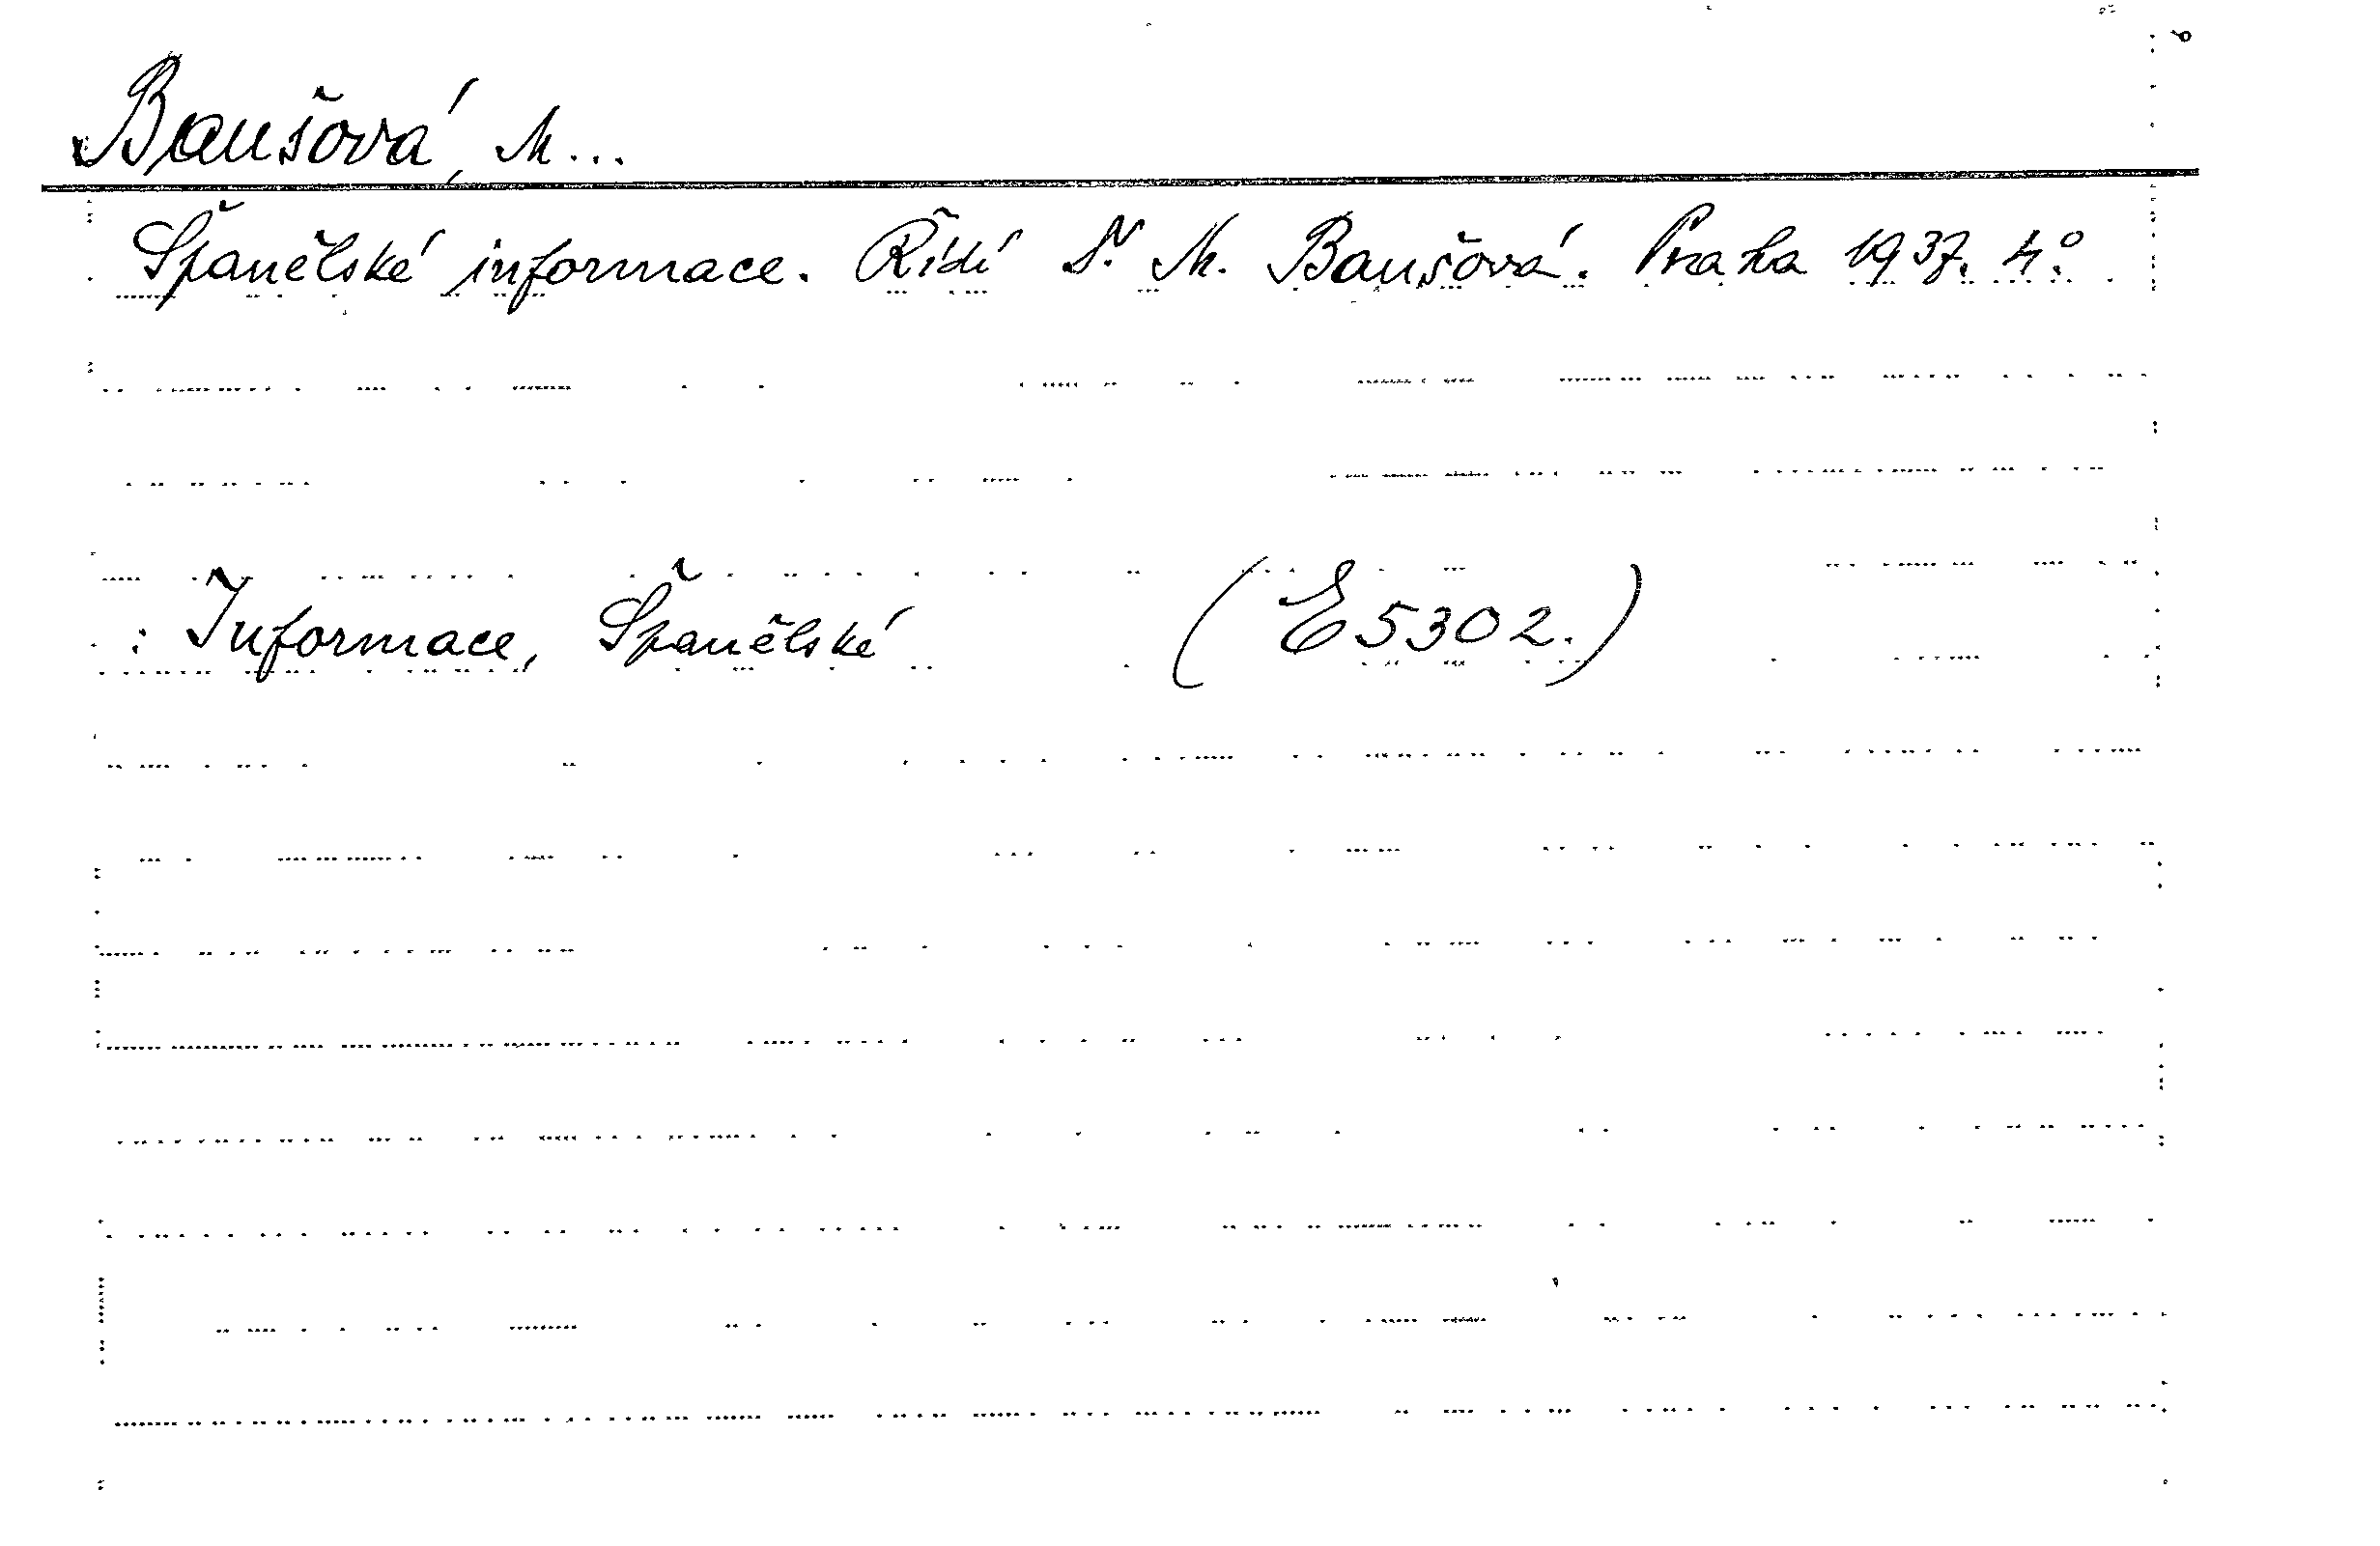 Baušová, M...
Španělské informace. Řídí Dr. M. Baušová. Praha 1937. 4°.
: Informace, Španělské (E 5302.)